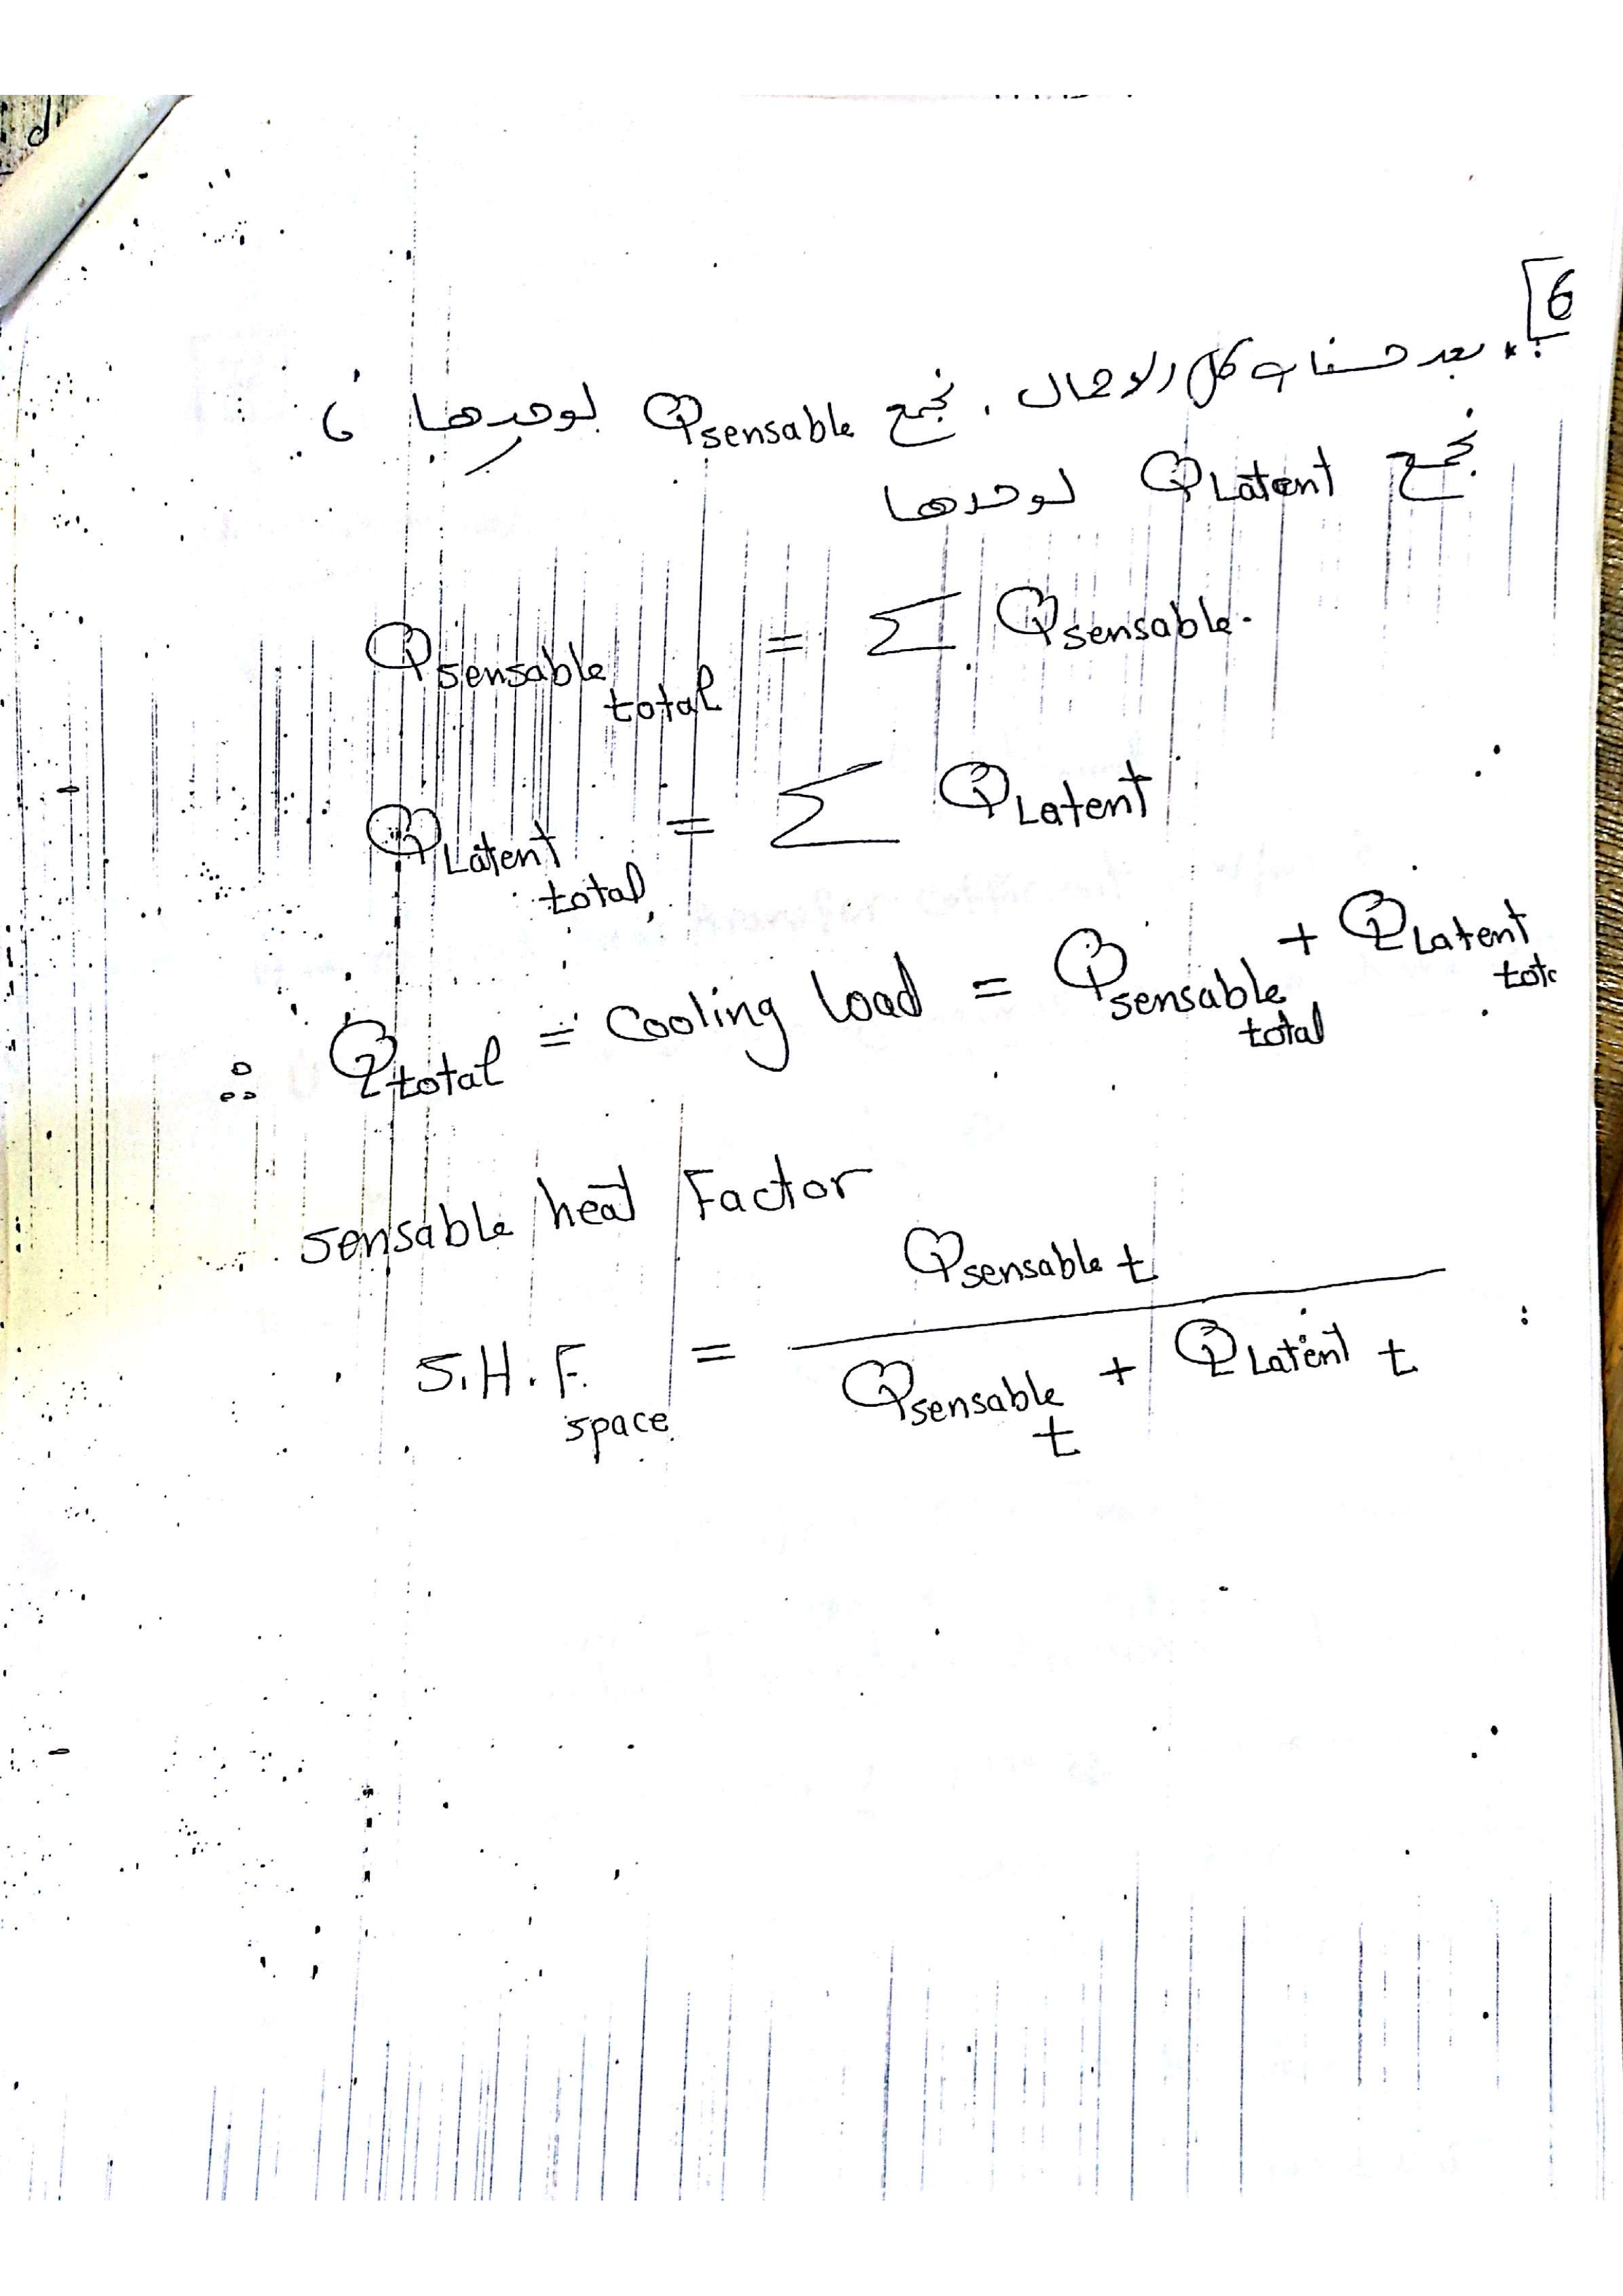 6]
* بعد حساب كل الاحمال . نجمع Qsensable لوحدها ،
نجمع QLatent لوحدها
Qsensable total = Σ Qsensable.
QLatent total = Σ QLatent
∴ Qtotal = Cooling load = Qsensable total + QLatent tot
sensable heat Factor
S.H.F. space = Qsensable t / Qsensable t + QLatent t